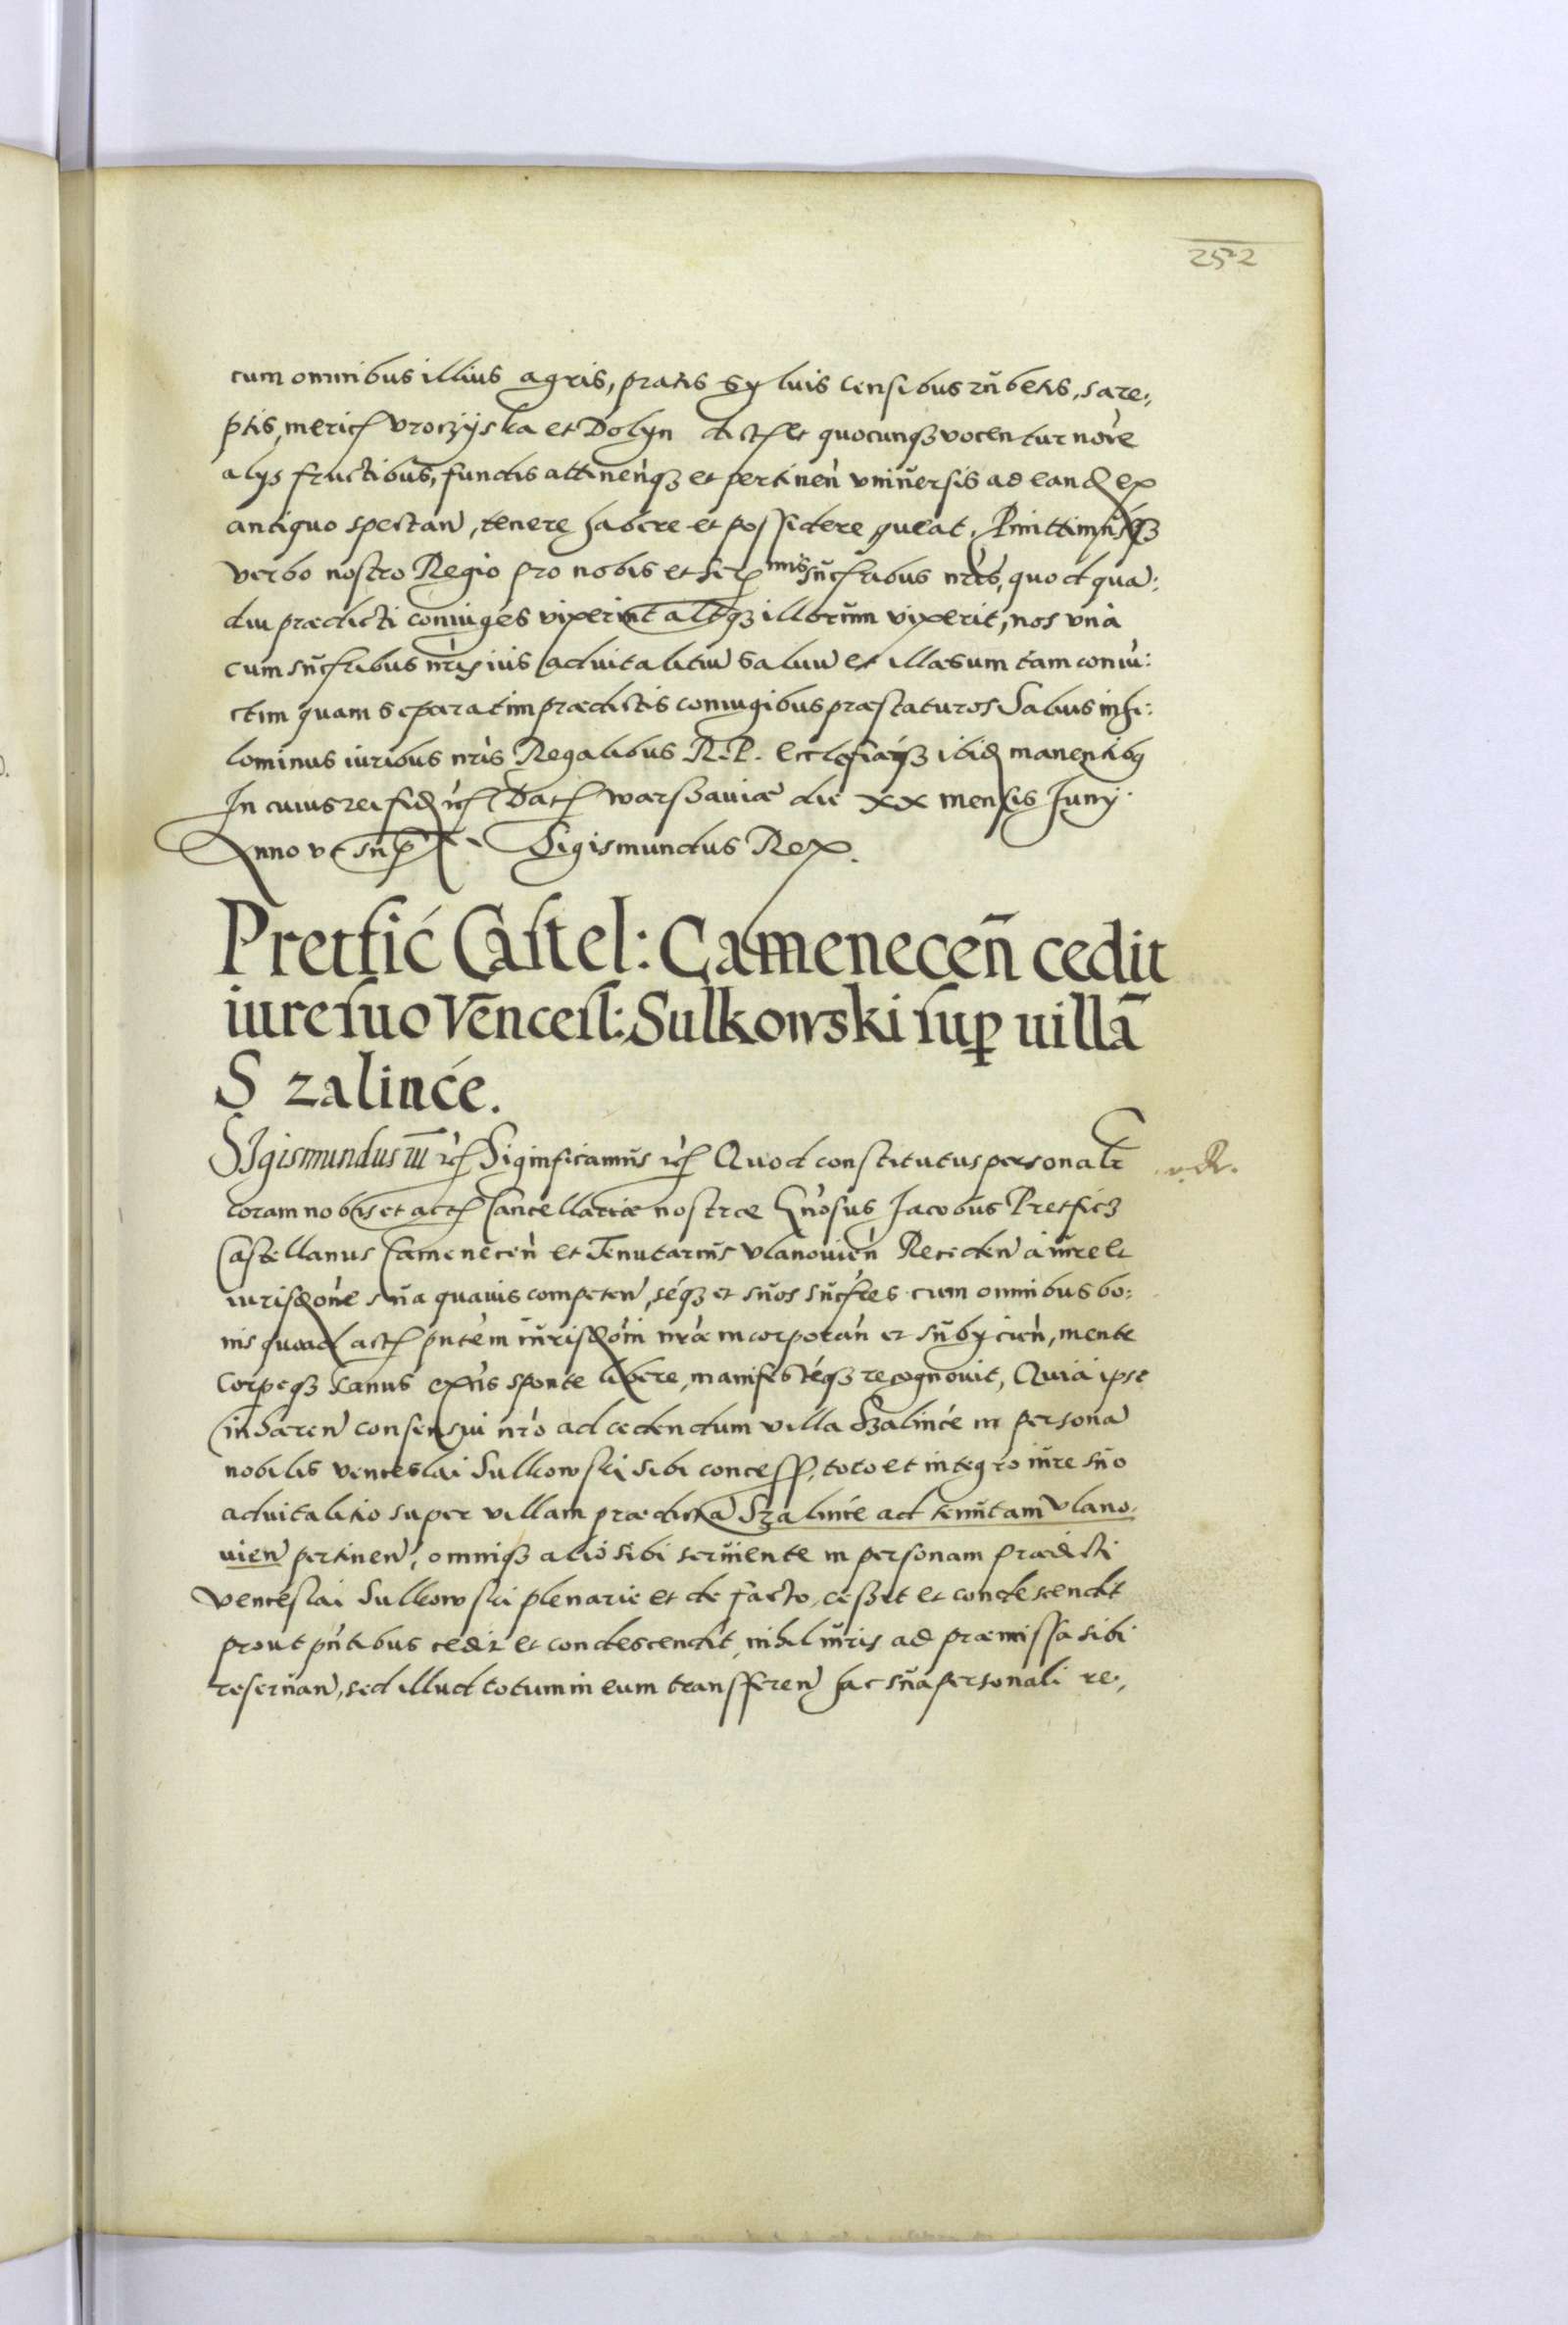 252
cum omnibus illius agris, pratis syluis censibus rũbetis, sare,,
ptis, mericꝭ vroczÿska et Dolyn dictꝭ et quocunqꝫ vocentur nom̀e
alys fructibus, fundis attinen̄qꝫ et pertinen̄ vniũersis ad eanđ ex
antiquo spectan̄, tenere habere et possidere queat. Pmittimũsqꝫ
verbo nostro Regio pro nobis et Serꝭ mis sũcꝭribus nr̄is, quod quā:
diu prædicti coniuges vixerint altꝫ illorũm vixerit, nos vnà
cum sũcꝭribus nr̄is ius aduitalitiũ saluũ et illæsum tam coniũ:
ctim quam separatim prædictis coniugibus præstaturos Saluis nihi:
lominus iuribus nr̄is Regalibus R. P. Ecclesiæqꝫ ibiđ manentibꝰ
In cuius rei fiđ ꝛcꝭ Datꝭ warssauiæ die xx mensis Juny.
Anno vt sũpꝭ Sigismundus Rex.
Pretfić Castel: Camenecen̄ cedit
iure suo Vēncesl: Sulkowski sup uillā
Szalinće.
SIgismundus III ꝛcꝭ Significamũs ꝛcꝭ Quod constitutus personalr̄
coram nobis et actꝭ Cancellariæ nostræ Gn̄osus Jacobus Pretficz
v. R.
Castellanus Camenecen̄ et Tenutariũs vlanouien̄ Reciden̄ à iũre et
iurisđon̄e sũa quauis competen̄, séqꝫ et sũos sũcꝭres cum omnibus bo:
nis quoad actꝭ pn̄tem iũrisđom̄ nr̄æ incorporan̄ et sũbycien̄, mente
Corpeqꝫ sanus exn̄s sponte libere, manifestéqꝫ recognouit, Quia ipse
inhæren̄ consensui nr̄o ad cedendum villa Szalinće in personā
nobilis venceslai Sulkowski sibi concessꝭ, toto et integro iũre sũo
aduitalitio super villam prædictā Szalinće ad tenũtam vlano,
uien̄ pertinen̄, omniqꝫ alió sibi serũiente in personam prædicti
venceslai Sulkowski plenarie et de facto, cessit et condescendit
prout pn̄tibus cedit et condescendit, nihil iũris ad præmissa sibi
reserũan̄, sed illud totum in eum transferen̄ hac sũa personali re,,